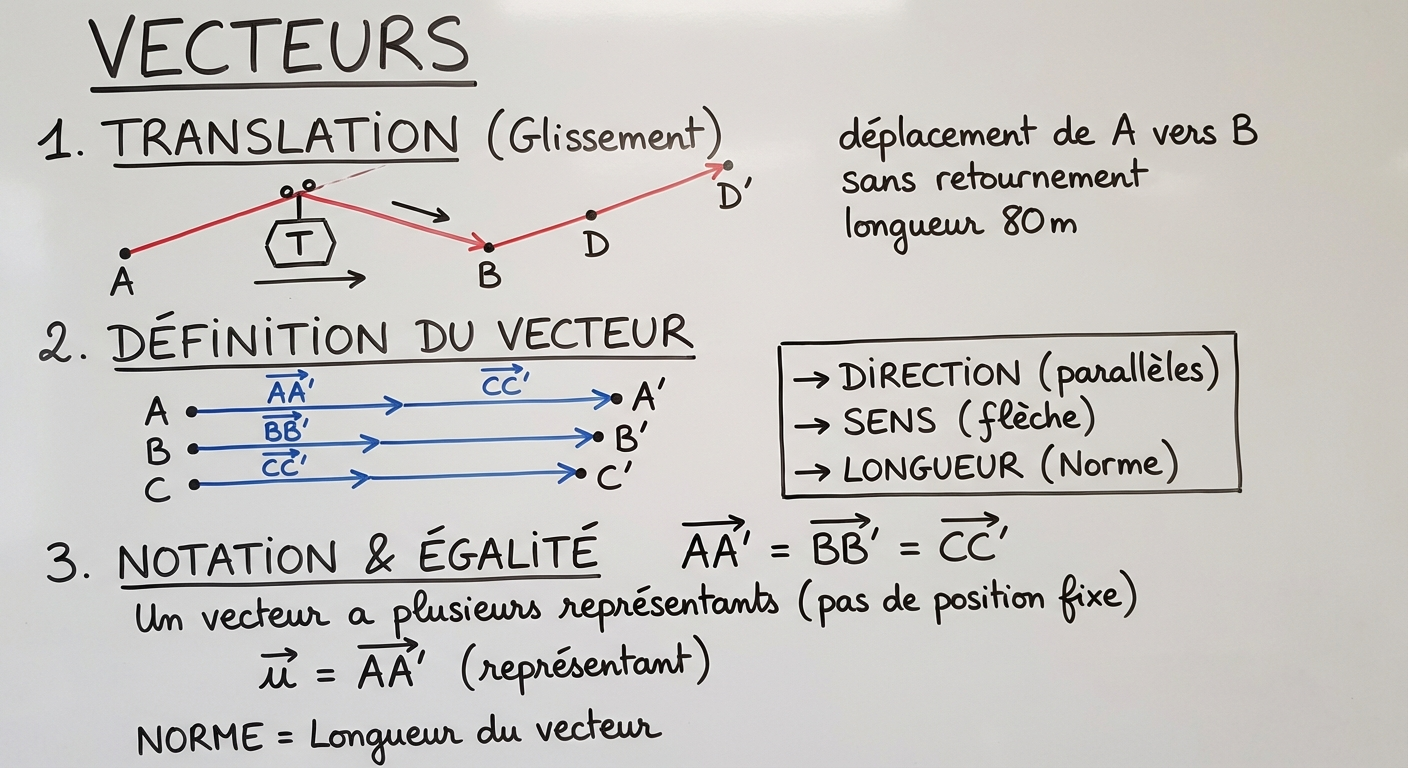 VECTEURS
1. TRANSLATION (Glissement)
déplacement de A vers B
sans retournement
longueur 80m
T
A
B
D
D'
2. DÉFINITION DU VECTEUR
AA' CC'
A A'
BB'
B B'
CC'
C C'
→ DIRECTION (parallèles)
→ SENS (flèche)
→ LONGUEUR (Norme)
3. NOTATION & ÉGALITÉ AA' = BB' = CC'
Un vecteur a plusieurs représentants (pas de position fixe)
u = AA' (représentant)
NORME = Longueur du vecteur